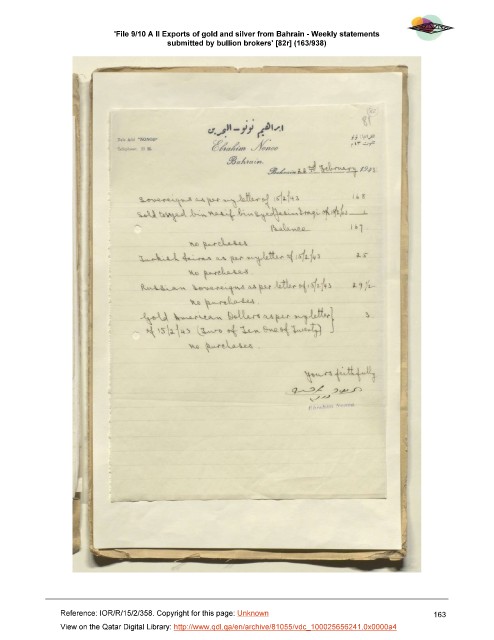 'File 9/10 A II Exports of gold and silver from Bahrain - Weekly statements
submitted by bullion brokers' [82r] (163/938)
ابراهيم نونو - البحرين
Ebrahim Nonoo
Bahrain.
Telephone
Bahrain 22nd February 194
Sovereigns as per my letter of 15/2/43 168
Sold Sayed bin of
Balance 167
no purchases
Turkish Leiras as per my letter of 15/2/43 25
no purchases.
Russian Sovereigns as per letter of 15/2/43 29½
no purchases.
Gold American Dollars as per my letter 3
of 15/2/43 (Two of Ten One of Twenty)
no purchases.
Yours faithfully
Reference: IOR/R/15/2/358. Copyright for this page: Unknown
163
View on the Qatar Digital Library: http://www.qdl.qa/en/archive/81055/vdc_100025656241.0x0000a4